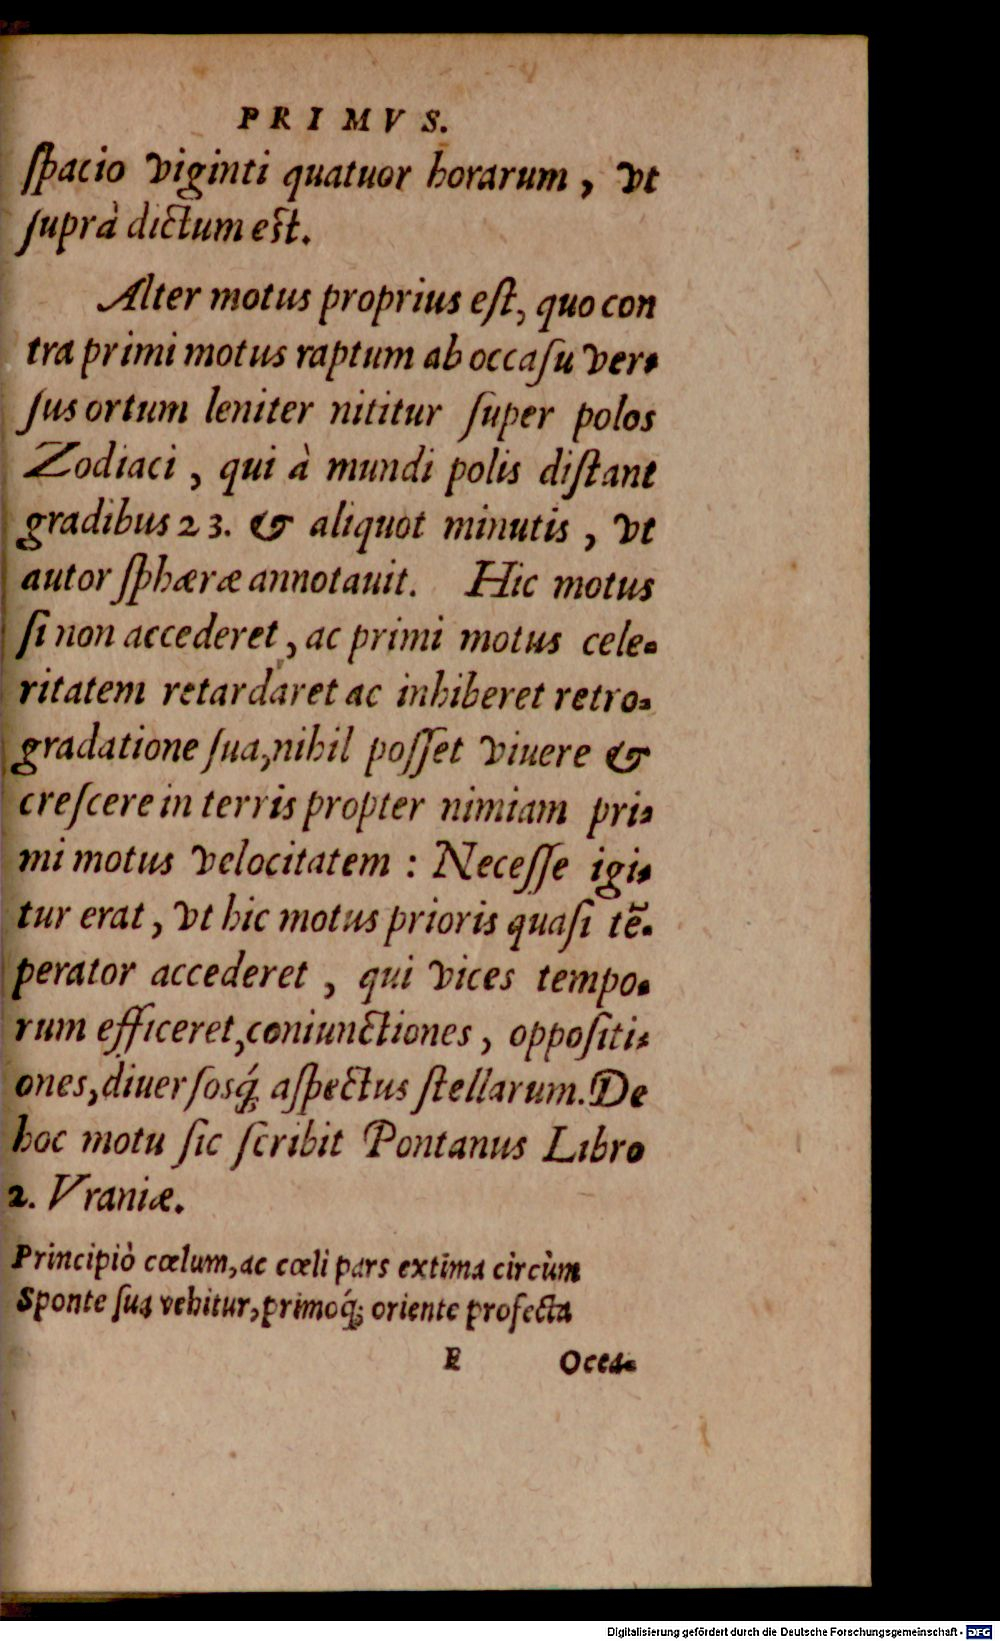 PRIMVS.
ſpacio viginti quatuor horarum, vt
ſuprà dictum eſt.
Alter motus proprius eſt, quo con
tra primi motus raptum ab occaſu ver-
ſus ortum leniter nititur ſuper polos
Zodiaci, qui à mundi polis diſtant
gradibus 23. & aliquot minutis, vt
autor ſphæræ annotauit. Hic motus
ſi non accederet, ac primi motus cele-
ritatem retardaret ac inhiberet retro-
gradatione ſua, nihil poſſet viuere &
creſcere in terris propter nimiam pri-
mi motus velocitatem: Neceſſe igi-
tur erat, vt hic motus prioris quaſi tē-
perator accederet, qui vices tempo-
rum efficeret, coniunctiones, oppoſiti-
ones, diuerſosq́; aſpectus ſtellarum. De
hoc motu ſic ſcribit Pontanus Libro
2. Vraniæ.
Principiò cœlum, ac cœli pars extima circùm
Sponte ſua vehitur, primoq́; oriente profecta
E Occa-
Digitalisierung gefördert durch die Deutsche Forschungsgemeinschaft - DFG